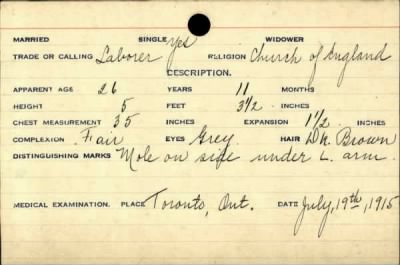 MARRIED SINGLE yes WIDOWER
TRADE OR CALLING Laborer RELIGION Church of England
DESCRIPTION.
APPARENT AGE 26 YEARS 11 MONTHS
HEIGHT 5 FEET 3 1/2 INCHES
CHEST MEASUREMENT 35 INCHES EXPANSION 1 1/2 INCHES
COMPLEXION Fair EYES Grey HAIR Dk. Brown
DISTINGUISHING MARKS Mole on side under L. arm.
MEDICAL EXAMINATION. PLACE Toronto, Ont. DATE July, 19th, 1915